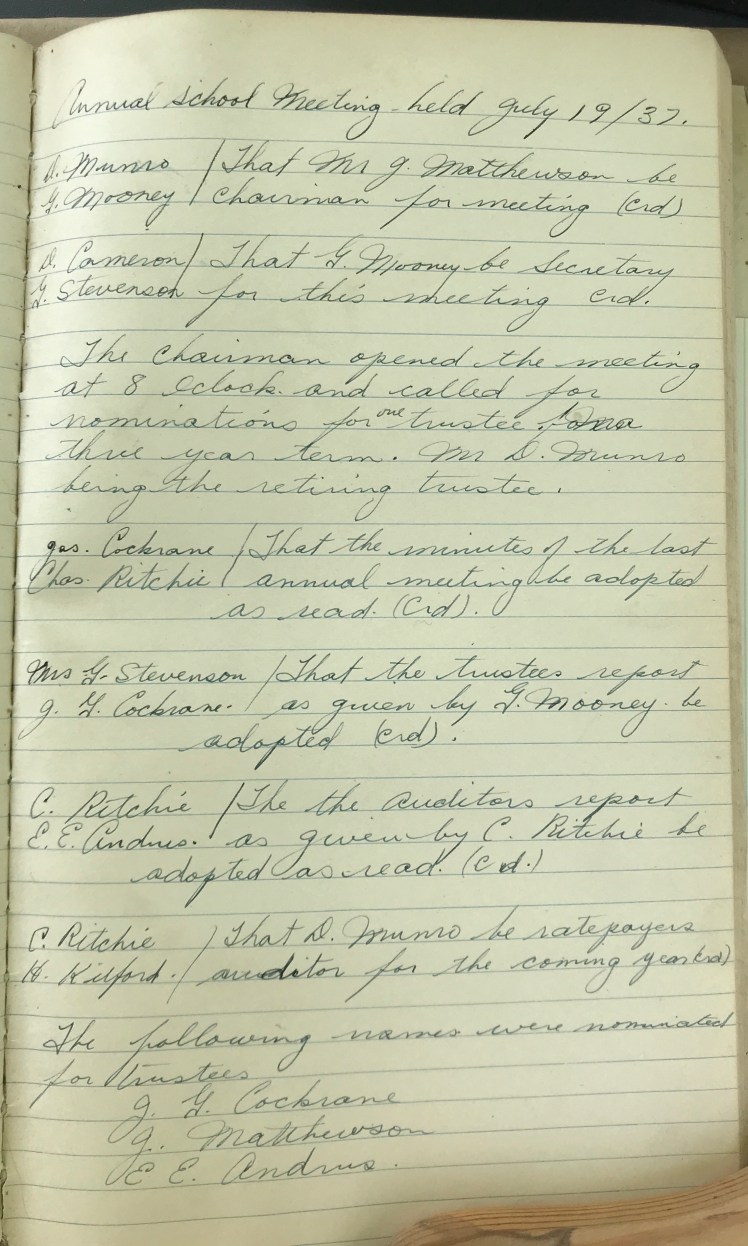 Annual School Meeting held July 19/37.
D. Munro / That Mr J. Matthewson be
G. Mooney / Chairman for meeting (Crd)
D. Cameron / That G. Mooney be Secretary
G. Stevenson for this meeting Crd.
The Chairman opened the meeting
at 8 Oclock and called for
nominations for one trustee for a
three year term. Mr D. Munro
being the retiring trustee.
Jas. Cockrane / That the minutes of the last
Chas. Ritchie / annual meeting be adopted
as read. (Crd).
Mrs G. Stevenson / That the trustees report
J. G. Cockrane. as given by G. Mooney be
adopted (crd).
C. Ritchie / The the auditors report
E. E. Andrus. as given by C. Ritchie be
adopted as read. (Cd.)
C. Ritchie / That D. Munro be ratepayers
H. Kilford. / auditor for the coming year (crd)
The following names were nominated
for trustees
J. G. Cockrane
J. Matthewson
E E. Andrus.